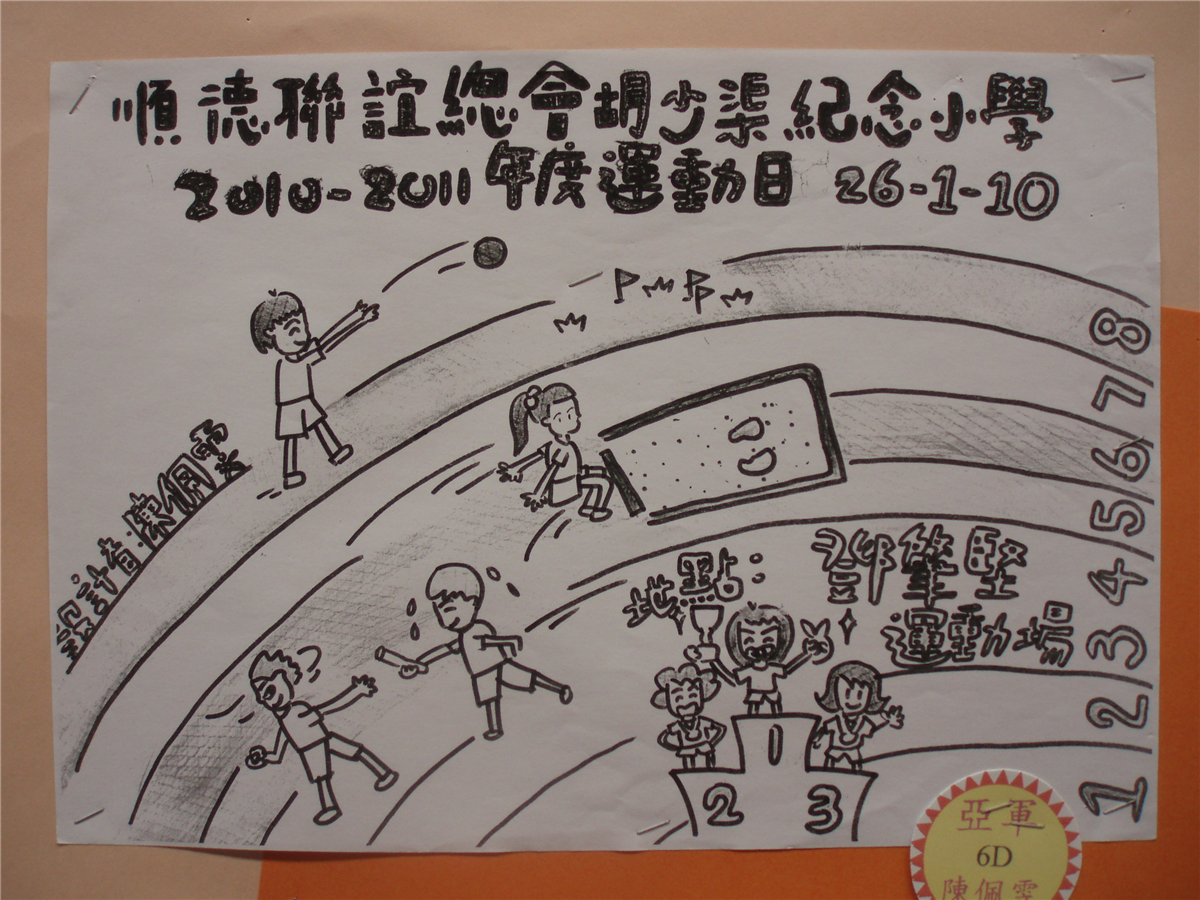 順德聯誼總會胡少渠紀念小學
2010-2011年度運動日 26-1-10
設計者:陳佩雯
地點: 鄧肇堅
運動場
8
7
6
5
4
3
2
1
1
2 3
亞軍
6D
陳佩雯